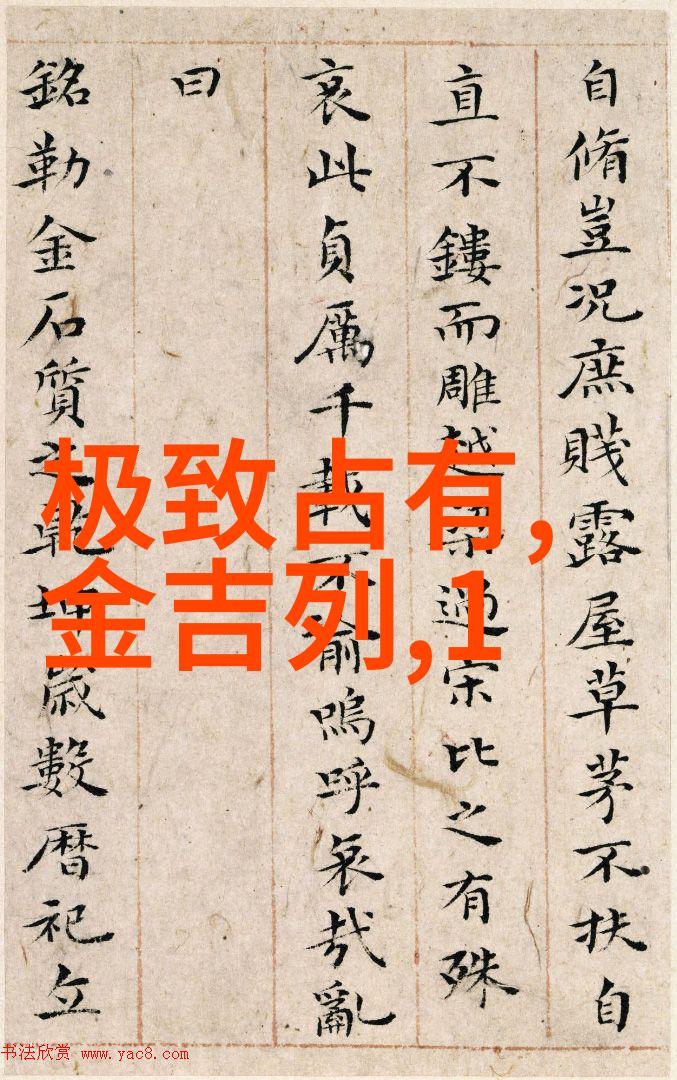 自脩豈況庶賤露屋草茅不扶自
直不鏤而雕越梁過宋比之有殊
哀此貞厲千載不渝嗚呼哀哉亂
曰
銘勒金石質之乾坤歲數暦祀立
极致占有,
金吉列,1
书法欣赏 www.yac8.com